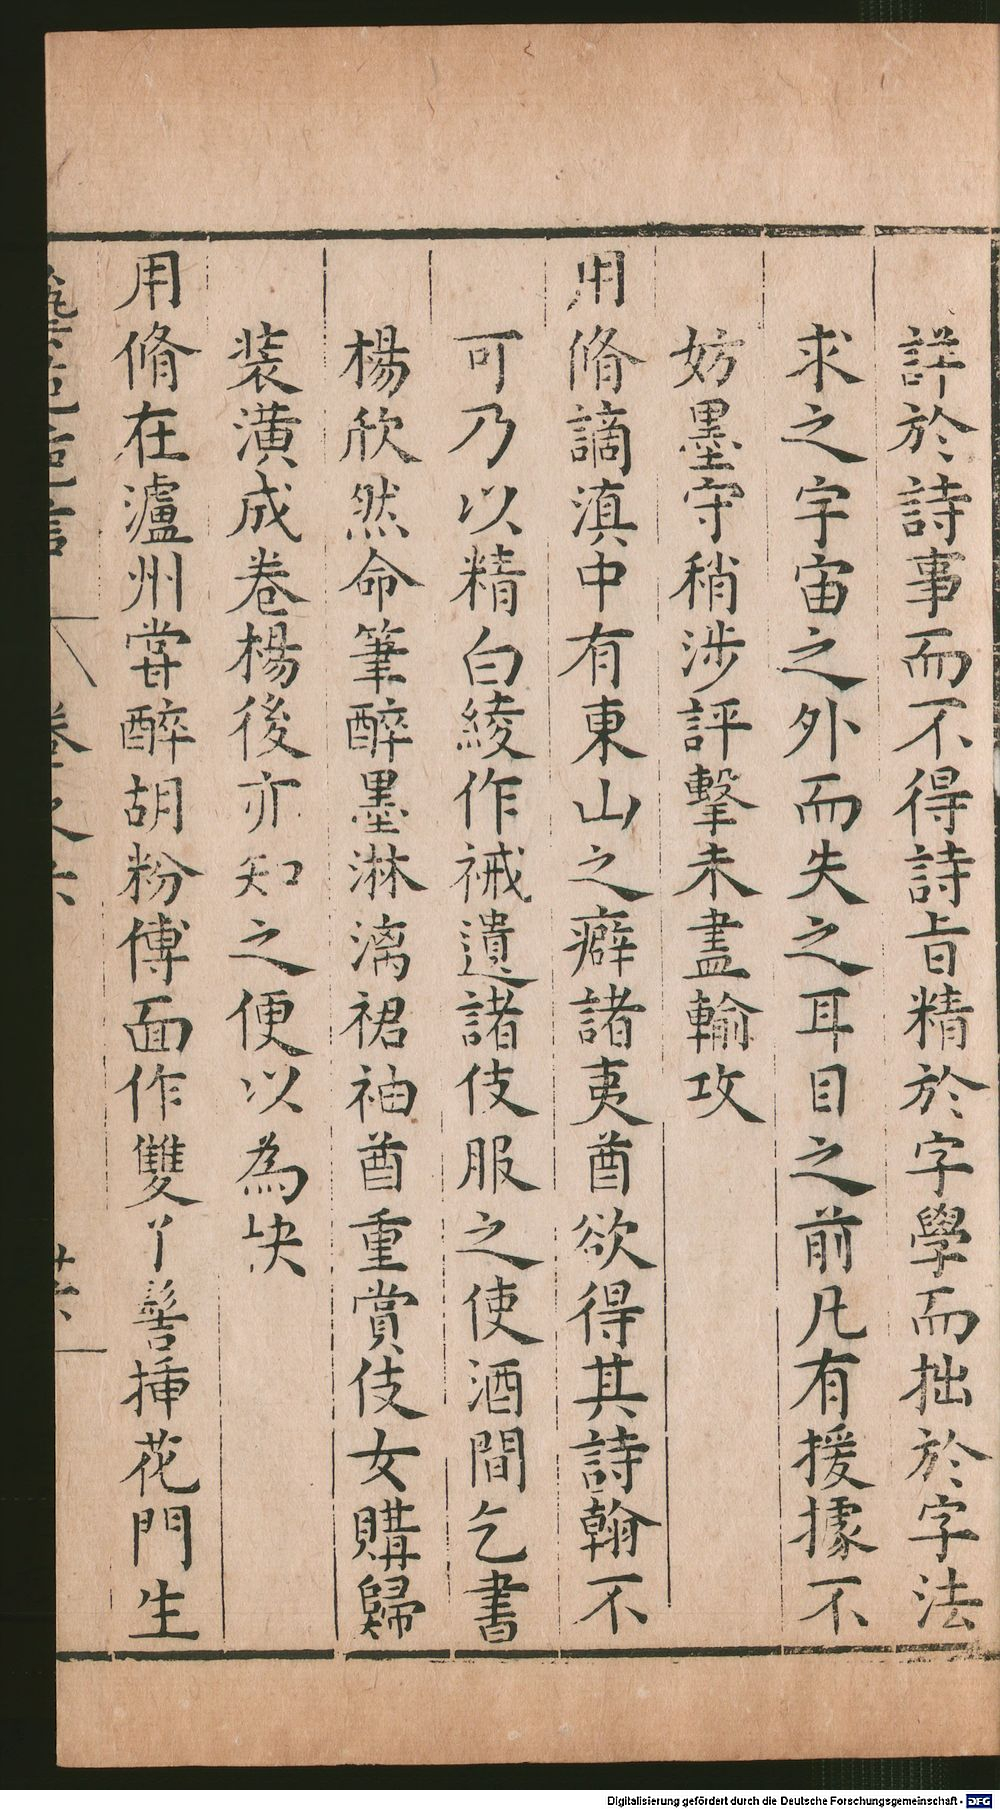 詳於詩事而不得詩旨精於字學而拙於字法
求之宇宙之外而失之耳目之前凡有援據不
妨墨守稍涉評擊未盡輸攻
用脩謫滇中有東山之癖諸夷酋欲得其詩翰不
可乃以精白綾作裓遺諸伎服之使酒間乞書
楊欣然命筆醉墨淋漓裙袖酋重賞伎女購歸
装潢成卷楊後亦知之便以為快
用脩在瀘州甞醉胡粉傅面作雙丫髻挿花門生
藝苑巵言
卷之六
廿六
Digitalisierung gefördert durch die Deutsche Forschungsgemeinschaft - DFG